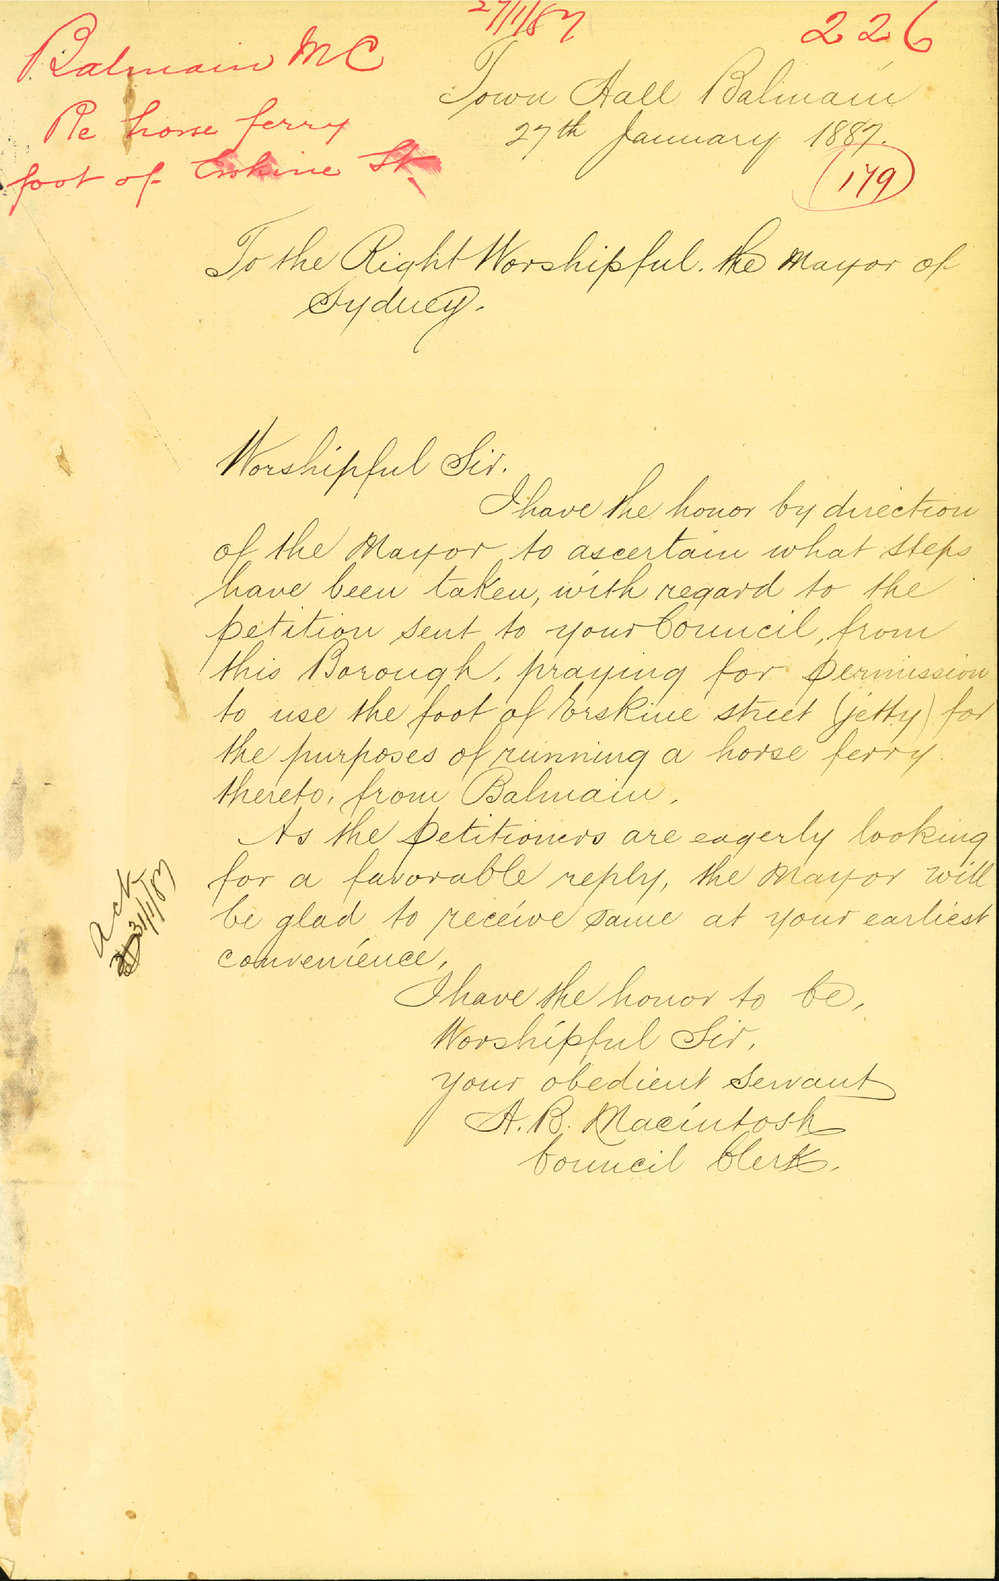 27/1/87
226
Balmain MC
Re horse ferry
foot of Erskine St.
Town Hall Balmain
27th January 1887.
179
To the Right Worshipful. the Mayor of
Sydney.
Worshipful Sir.
I have the honor by direction
of the Mayor, to ascertain what steps
have been taken, with regard to the
petition sent to your Council, from
this Borough, praying for permission
to use the foot of Erskine street (jetty) for
the purposes of running a horse ferry
thereto, from Balmain.
As the Petitioners are eagerly looking
for a favorable reply, the Mayor will
be glad to receive same at your earliest
convenience,
I have the honor to be,
Worshipful Sir,
your obedient servant
A. B. Macintosh
Council Clerk.
Ack
31/1/87